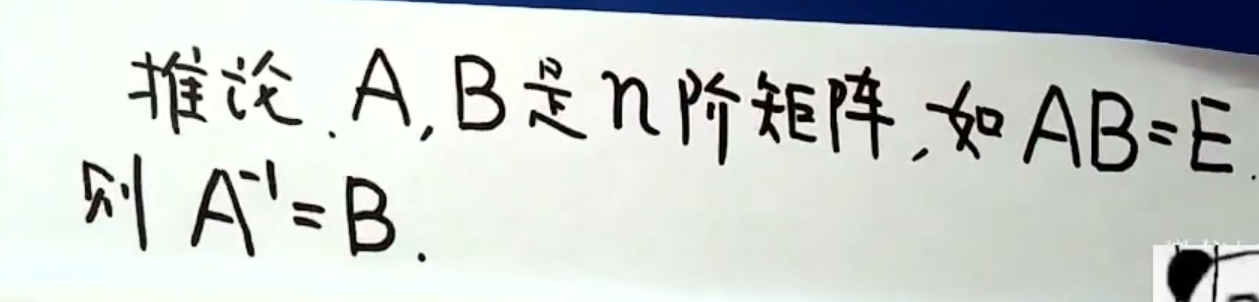 推论. A, B是n阶矩阵, 如AB=E.
则 A⁻¹=B.